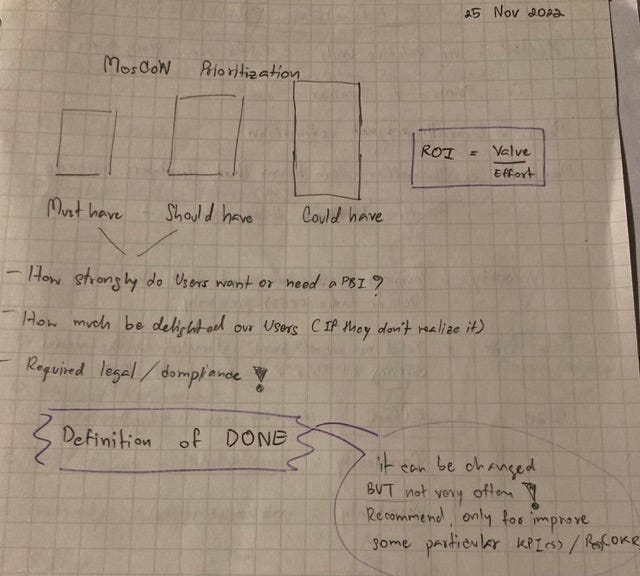 25 Nov 2022
MosCoW Prioritization
ROI = Value
Effort
Must have Should have Could have
- How strongly do Users want or need a PBI?
- How much be delighted our Users (If they don't realize it)
- Required legal/dompliance !
Definition of DONE
it can be changed
BUT not very often !
Recommend, only for improve
some particular KPI(s) /